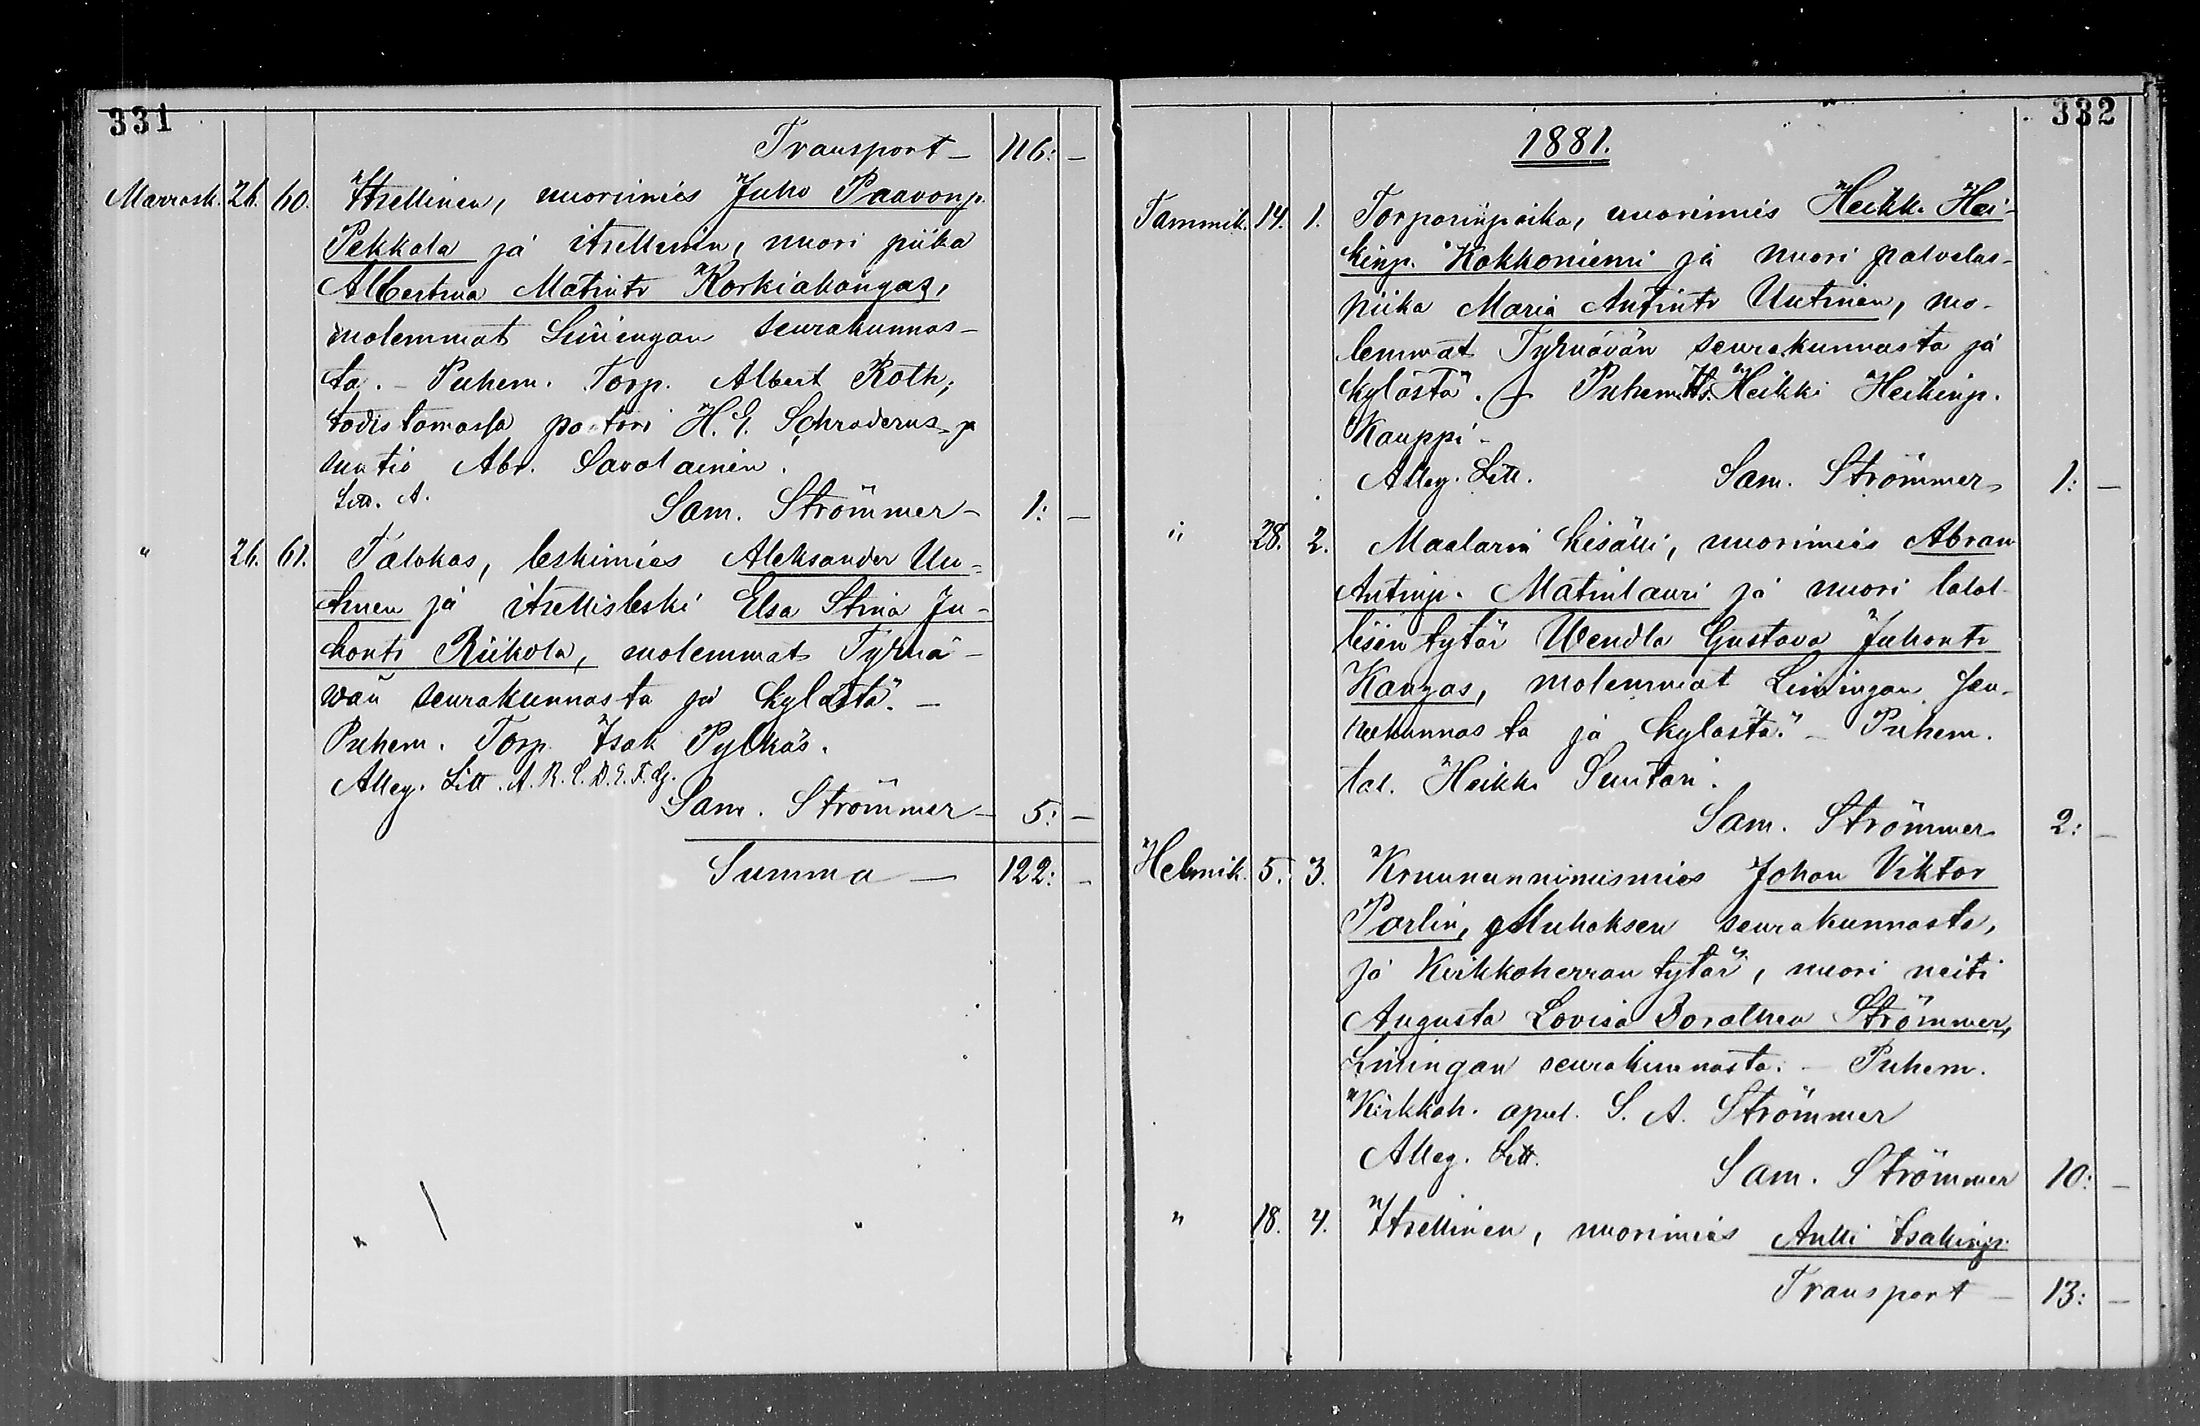 331
Transport — 116: —
Marrask. 26. 60. Itsellinen, nuorimies Juho Paavonp.
Pekkala ja itsellinen, nuori piika
Albertina Matintr Korkiakangas,
molemmat Limingan seurakunnas-
ta. - Puhem. Torp. Albert Roth;
todistamassa pastori H. G. Schroderus ja
suntio Abr. Savolainen.
Litt. A.
Sam. Strömmer — 1: —
" 26. 61. Talokas, leskimies Aleksander Uu-
tinen ja itsellisleski Elsa Stina Ju-
hontr Riikola, molemmat Tyrnä-
wän seurakunnasta ja kylästä. —
Puhem. Torp. Isak Pylkäs.
Alleg. Litt. A. B. C. D. E. F. G.
Sam. Strömmer — 5: —
Summa — 122: —
332
1881.
Tammik. 14. 1. Torparinpoika, nuorimies Heikk. Hei-
kinp. Kokkoniemi ja nuori palvelus-
piika Maria Antintr Uutinen, mo-
lemmat Tyrnävän seurakunnasta ja
kylästä. Puhem. Its. Heikki Heikinp.
Kauppi.
Alleg. Litt. Sam. Strömmer 1: —
" 28. 2. Maalarin kisälli, nuorimies Abram
Antinp. Matinlauri ja nuori talol-
lisen tytär Wendla Gustava Juhontr
Kangas, molemmat Limingan seu-
rakunnasta ja kylästä. - Puhem.
tal. Heikki Suntari.
Sam. Strömmer 2: —
Helmik. 5. 3. Kruununnimismies Johan Viktor
Parlin, Muhoksen seurakunnasta,
ja Kirkkoherran tytär, nuori neiti
Augusta Lovisa Dorothea Strömmer,
Limingan seurakunnasta. - Puhem.
Kirkkoh. apul. S. A. Strömmer
Alleg. Litt.
Sam. Strömmer 10: —
" 18. 4. Itsellinen, nuorimies Antti Isakinp.
Transport — 13: —